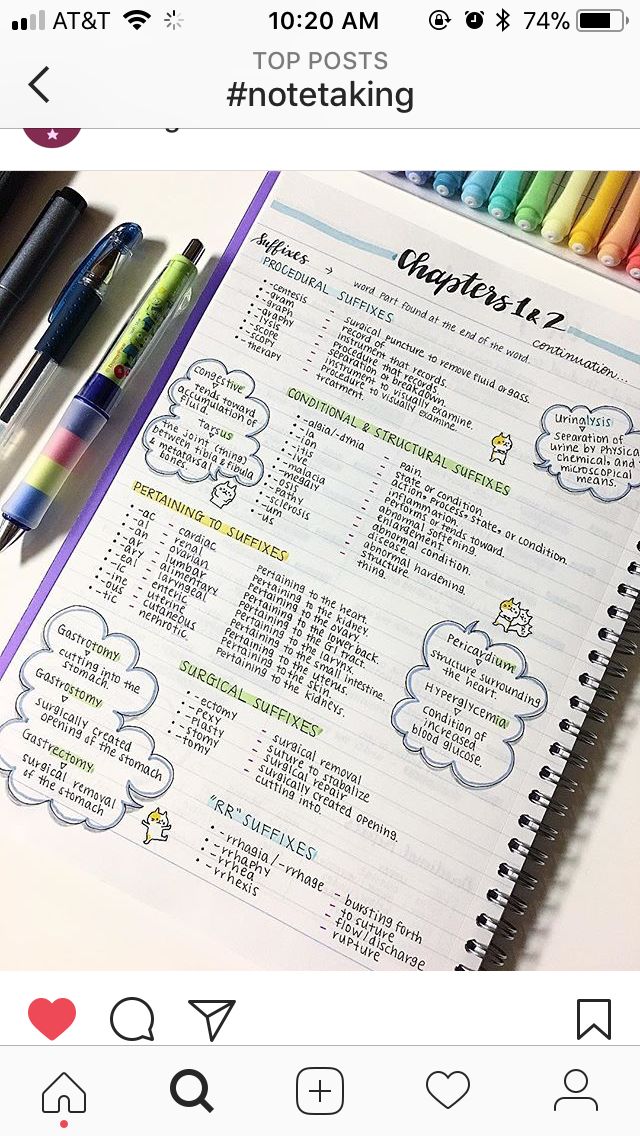 AT&T
10:20 AM
74%
TOP POSTS
#notetaking
Chapters 1 & 2
continuation...
Suffixes → word part found at the end of the word.
PROCEDURAL SUFFIXES
-centesis - surgical puncture to remove fluid or gass.
-gram - record of.
-graph - instrument that records.
-graphy - procedure that records.
-lysis - separation or breakdown.
-scope - instrument to visually examine.
-scopy - procedure to visually examine.
-therapy - treatment.
congestive
tends toward
accumulation of
fluid.
Tarsus
the joint (thing)
between tibia & fibula
& metatarsal
bones.
CONDITIONAL & STRUCTURAL SUFFIXES
-algia/-dynia - pain.
-ia - state or condition.
-ion - action, process, state, or condition.
-itis - inflammation.
-ive - performs or tends toward.
-malacia - abnormal softening.
-megaly - enlargement.
-osis - abnormal condition.
-pathy - disease.
-sclerosis - abnormal hardening.
-um - structure.
-us - thing.
Urinalysis
separation of
urine by physical
chemical, and
microscopical
means.
PERTAINING TO SUFFIXES
-ac - cardiac - Pertaining to the heart.
-al - renal - Pertaining to the kidney.
-an - ovarian - Pertaining to the ovary.
-ar - lumbar - Pertaining to the lower back.
-ary - alimentary - Pertaining to the GI tract.
-eal - laryngeal - Pertaining to the larynx.
-ic - enteric - Pertaining to the small intestine.
-ine - uterine - Pertaining to the uterus.
-ous - cutaneous - Pertaining to the skin.
-tic - nephrotic. - Pertaining to the kidneys.
Pericardium
structure surrounding
the heart.
Hyperglycemia
condition of
increased
blood glucose.
Gastrotomy
cutting into the
stomach.
Gastrostomy
surgically created
opening of the stomach
Gastrectomy
surgical removal
of the stomach
SURGICAL SUFFIXES
-ectomy - surgical removal
-pexy - suture to stabalize
-plasty - surgical repair
-stomy - surgically created opening.
-tomy - cutting into.
"RR" SUFFIXES
-rrhagia/-rrhage - bursting forth
-rrhaphy - to suture
-rrhea - flow/discharge
-rrhexis - rupture